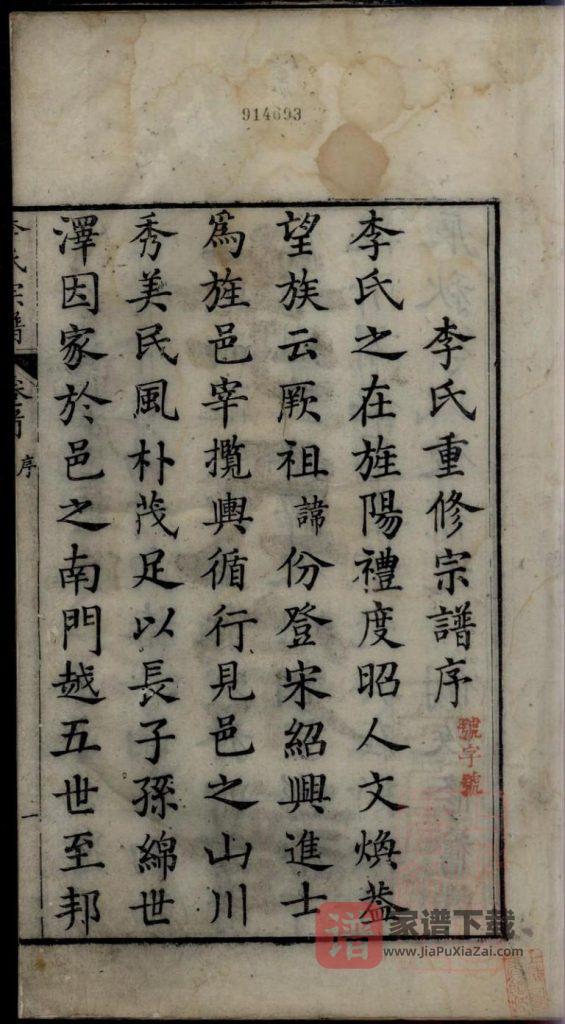 914693
李氏重修宗譜序
號字號
李氏之在旌陽禮度昭人文煥葢
望族云厥祖諱份登宋紹興進士
爲旌邑宰攬輿循行見邑之山川
秀美民風朴茂足以長子孫綿世
澤因家於邑之南門越五世至邦
李氏宗譜
序
一
谱
家谱下载
www.JiaPuXiaZai.com